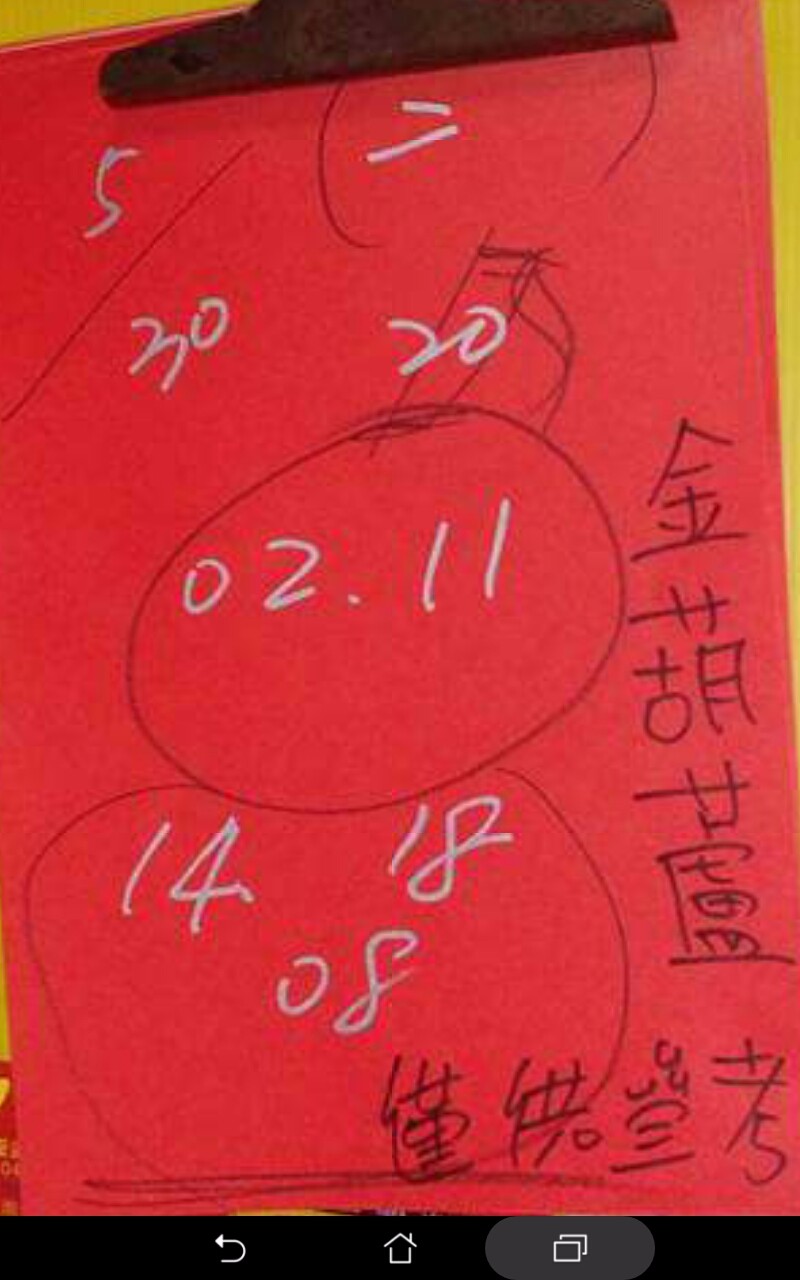 5
30
二
20
02.11
14 18
08
金葫蘆
僅供參考